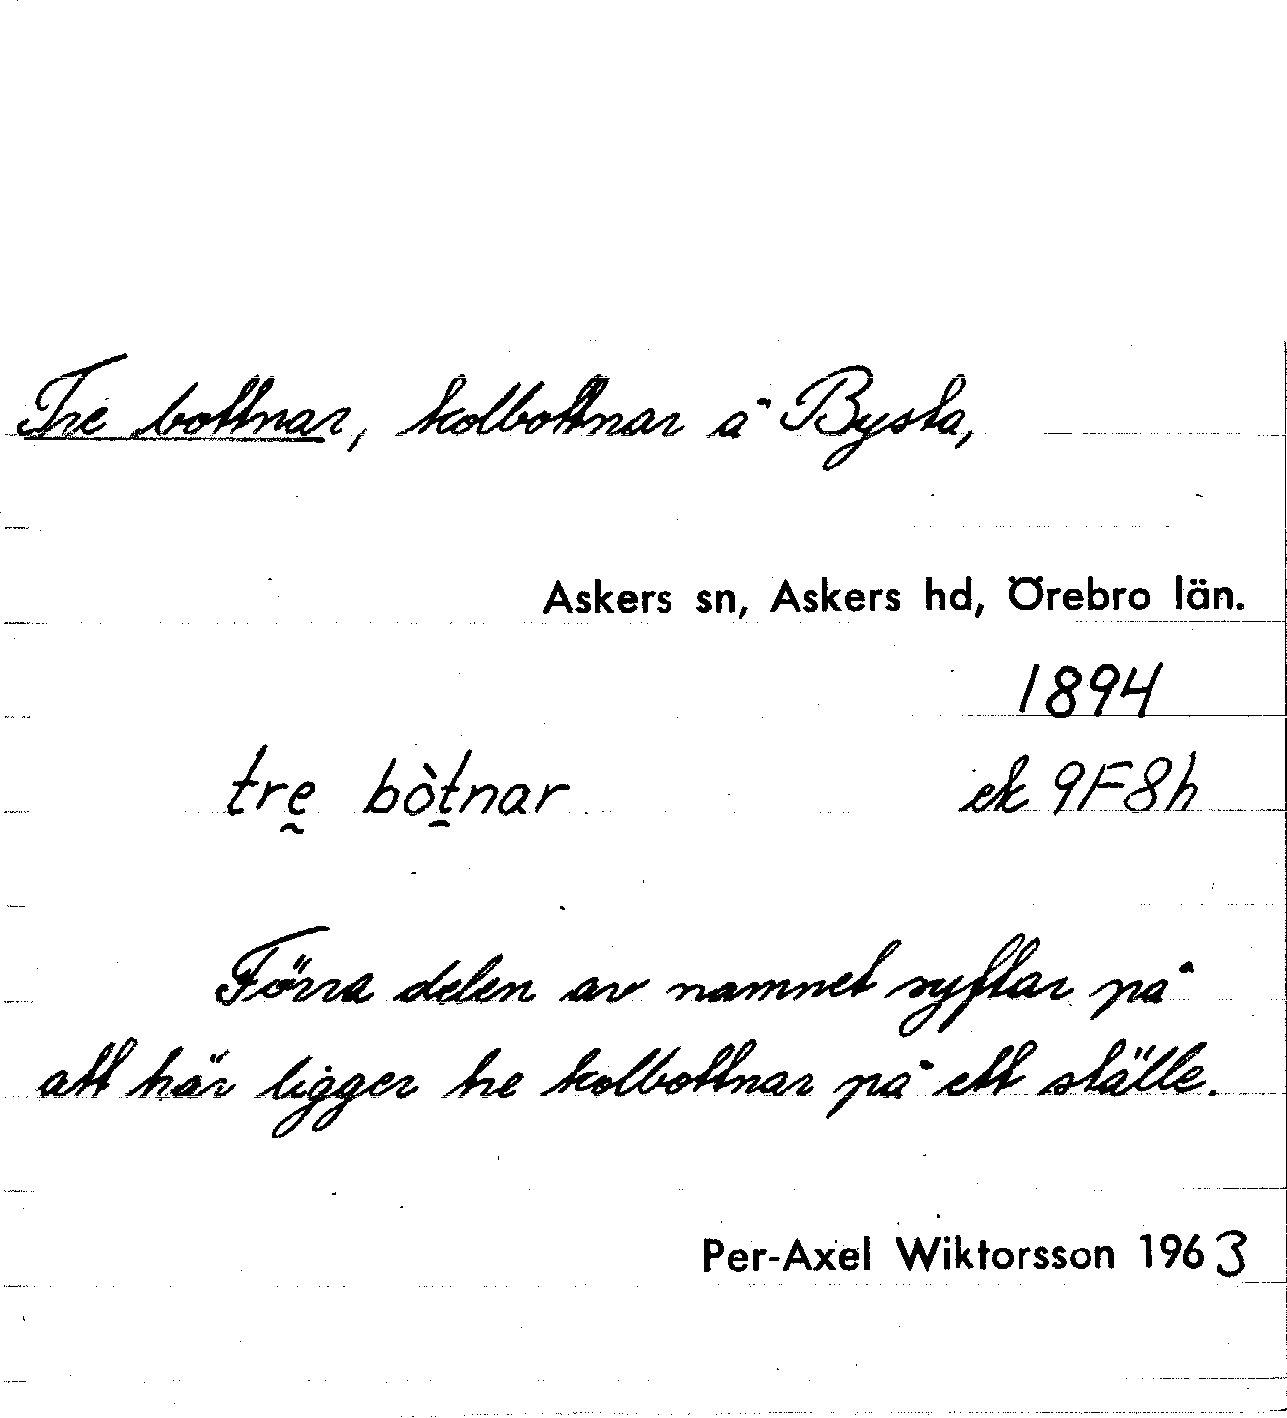 Tre bottnar, kolbottnar å Bysta,
Askers sn, Askers hd, Örebro län.
1894
trḛ bòt̰nar ek 9F8h
Förra delen av namnet syftar på
att här ligger tre kolbottnar på ett ställe.
Per-Axel Wiktorsson 1963